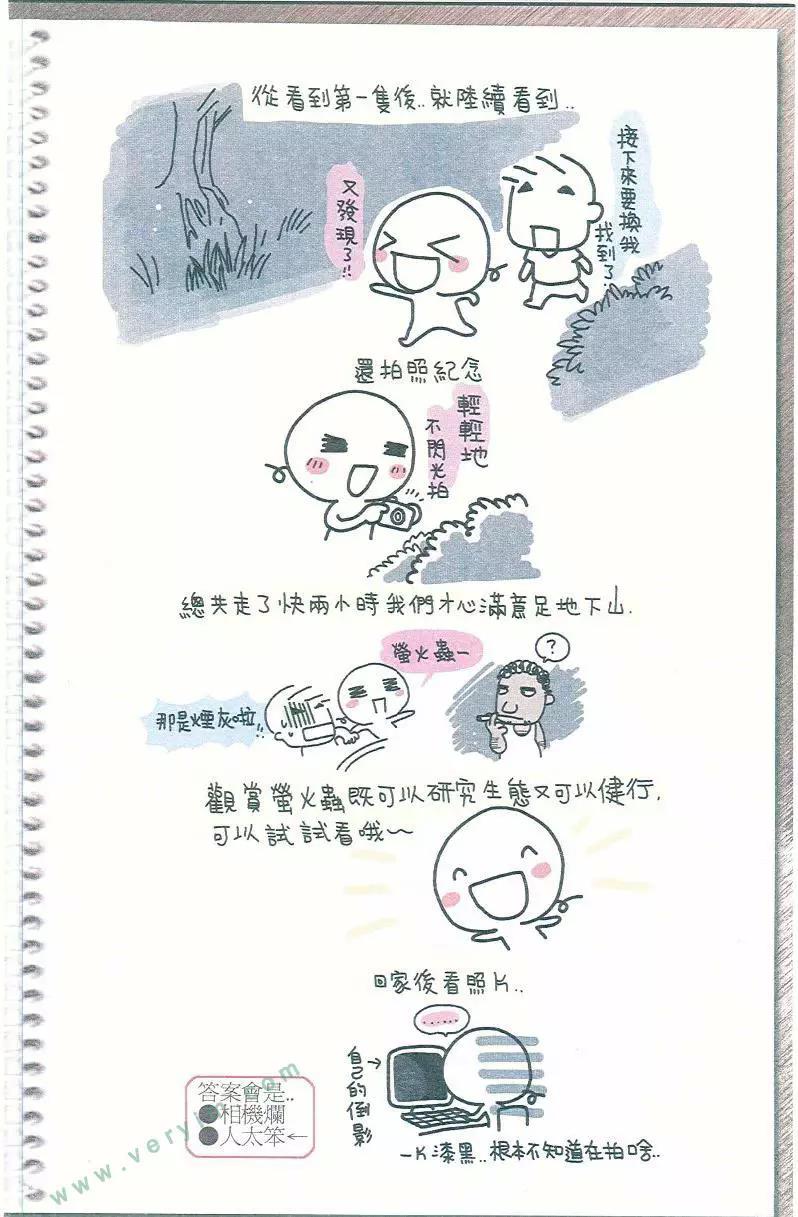 從看到第一隻後..就陸續看到..
又發現了!!
接下來要換我
找到了..
還拍照紀念
輕輕地
不閃光拍
總共走了快兩小時我們才心滿意足地下山.
螢火蟲~
?
那是煙灰啦!!
觀賞螢火蟲既可以研究生態又可以健行,
可以試試看哦~
回家後看照片..
......
自己的倒影→
答案會是..
●相機爛
●人太笨←
一片漆黑..根本不知道在拍啥..